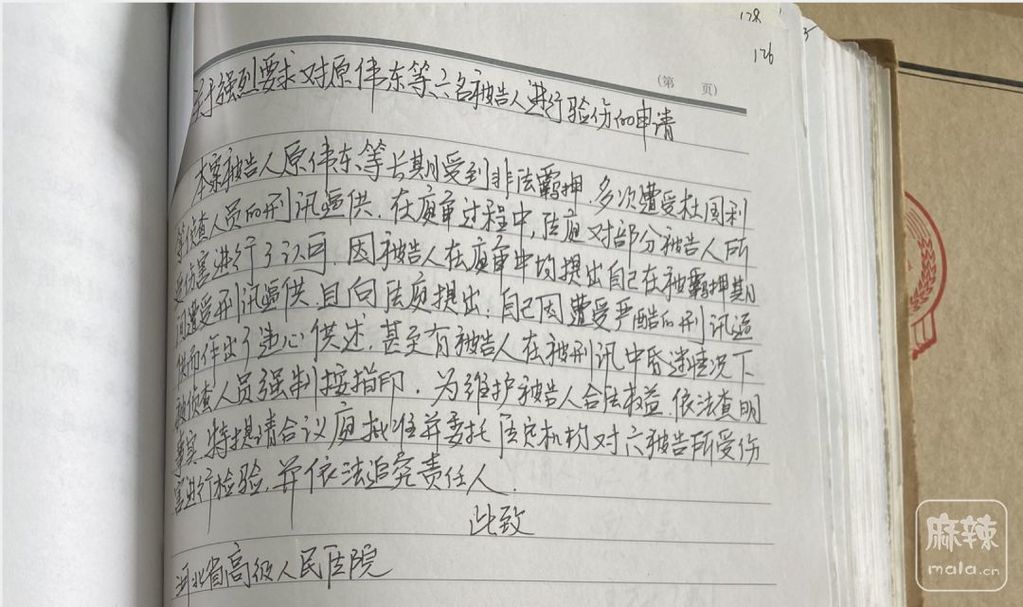 128
126
(第 页)
强烈要求对原伟东等六名被告人进行验伤的申请
本案被告人原伟东等长期受到非法羁押,多次遭受杜国利
等侦查人员的刑讯逼供,在庭审过程中,法庭对部分被告人所
伤害进行了认可,因被告人在庭审中均提出自己在被羁押期
间遭受刑讯逼供,且向法庭提出,自己因遭受严酷的刑讯逼
供而作出了违心供述,甚至有被告人在被刑讯中昏迷情况下
被侦查人员强制按指印,为维护被告人合法权益,依法查明
事实,特提请合议庭批准并委托法定机构对六被告所受伤
害进行检验,并依法追究责任人.
此致
河北省高级人民法院
麻辣
mala.cn